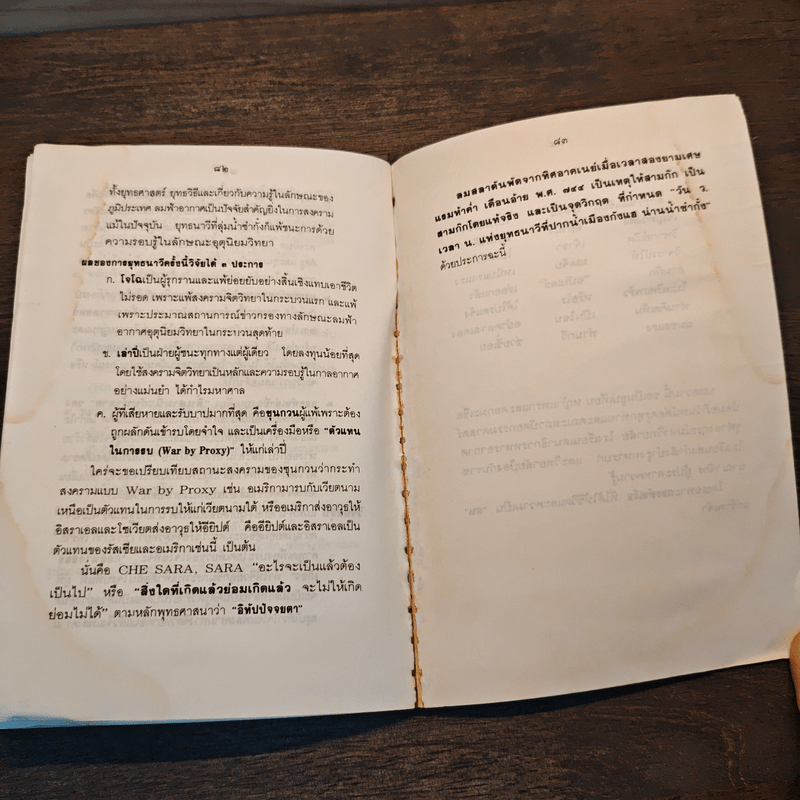 ๘๒
ทั้งยุทธศาสตร์ ยุทธวิธีและเกี่ยวกับความรู้ในลักษณะของ
ภูมิประเทศ ลมฟ้าอากาศเป็นปัจจัยสำคัญยิ่งในการสงคราม
แม้ในปัจจุบัน ยุทธนาวีที่ลุ่มน้ำซ่ากั๋งก็แพ้ชนะการด้วย
ความรอบรู้ในลักษณะอุตุนิยมวิทยา
ผลของการยุทธนาวีครั้งนี้วิจัยได้ ๓ ประการ
ก. โจโฉเป็นผู้รุกรานและแพ้ย่อยยับอย่างสิ้นเชิงแทบเอาชีวิต
ไม่รอด เพราะแพ้สงครามจิตวิทยาในกระบวนแรก และแพ้
เพราะประมาณสถานการณ์ข่าวกรองทางลักษณะลมฟ้า
อากาศอุตุนิยมวิทยาในกระบวนสุดท้าย
ข. เล่าปี่เป็นฝ่ายผู้ชนะทุกทางแต่ผู้เดียว โดยลงทุนน้อยที่สุด
โดยใช้สงครามจิตวิทยาเป็นหลักและความรอบรู้ในกาลอากาศ
อย่างแม่นยำ ได้กำไรมหาศาล
ค. ผู้ที่เสียหายและรับบาปมากที่สุด คือซุนกวนผู้แพ้เพราะต้อง
ถูกผลักดันเข้ารบโดยจำใจ และเป็นเครื่องมือหรือ "ตัวแทน
ในการรบ (War by Proxy)" ให้แก่เล่าปี่
ใคร่จะขอเปรียบเทียบสถานะสงครามของซุนกวนว่ากระทำ
สงครามแบบ War by Proxy เช่น อเมริกามารบกับเวียตนาม
เหนือเป็นตัวแทนในการรบให้แก่เวียตนามใต้ หรืออเมริกาส่งอาวุธให้
อิสราเอลและโซเวียตส่งอาวุธให้อียิปต์ คืออียิปต์และอิสราเอลเป็น
ตัวแทนของรัสเซียและอเมริกาเช่นนี้ เป็นต้น
นั่นคือ CHE SARA, SARA "อะไรจะเป็นแล้วต้อง
เป็นไป" หรือ "สิ่งใดที่เกิดแล้วย่อมเกิดแล้ว จะไม่ให้เกิด
ย่อมไม่ได้" ตามหลักพุทธศาสนาว่า "อิทัปปัจจยตา"
๘๓
ลมสลาตันพัดจากทิศอาคเนย์เมื่อเวลาสองยามเศษ
แรมห้าค่ำ เดือนอ้าย พ.ศ. ๗๔๔ เป็นเหตุให้สามก๊ก เป็น
สามก๊กโดยแท้จริง และเป็นจุดวิกฤต ที่กำหนด "วัน ว.
เวลา น. แห่งยุทธนาวีที่ปากน้ำเมืองกังแฮ น่านน้ำซ่ากั๋ง"
ด้วยประการฉะนี้